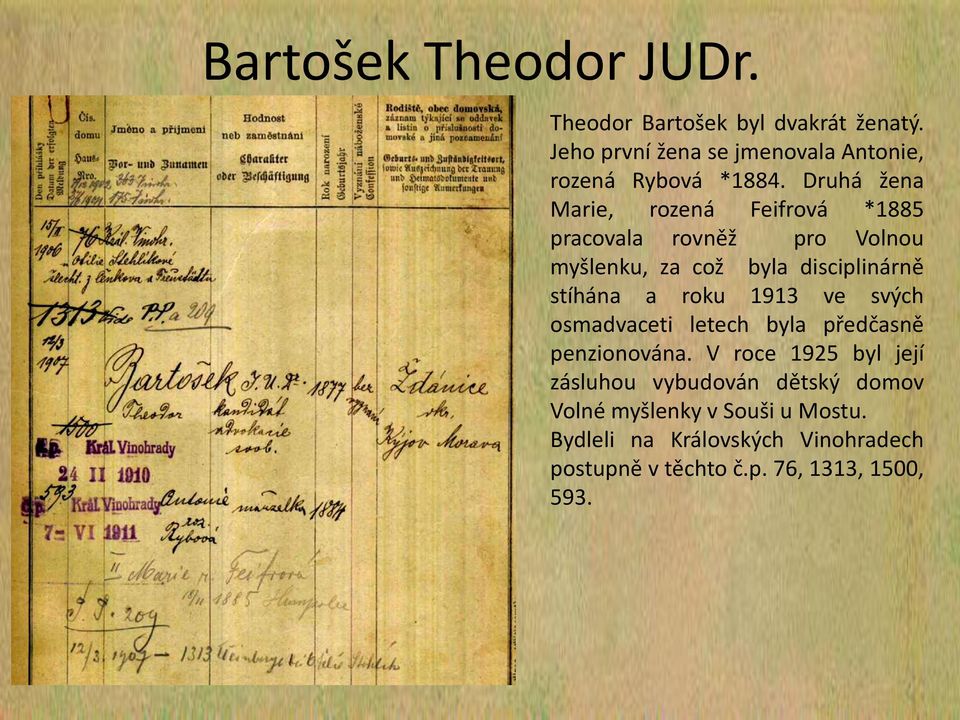 Bartošek Theodor JUDr.
Theodor Bartošek byl dvakrát ženatý.
Jeho první žena se jmenovala Antonie,
rozená Rybová *1884. Druhá žena
Marie, rozená Feifrová *1885
pracovala rovněž pro Volnou
myšlenku, za což byla disciplinárně
stíhána a roku 1913 ve svých
osmadvaceti letech byla předčasně
penzionována. V roce 1925 byl její
zásluhou vybudován dětský domov
Volné myšlenky v Souši u Mostu.
Bydleli na Královských Vinohradech
postupně v těchto č.p. 76, 1313, 1500,
593.
Den přihlášky
Datum der erfolgten Meldung
Čís. domu
Haus-Nro.
Jméno a příjmení
Vor- und Zunamen
Hodnost
neb zaměstnání
Charakter
oder Beschäftigung
Rok narození
Geburtsjahr
Vyznání náboženské
Confession
Rodiště, obec domovská,
záznam týkající se oddavek
a listin o příslušnosti do-
movské a jiná poznamenání
Geburts- und Zuständigkeitsort,
sowie Aufzeichnung der Trauung
und Heimatsdokumente und
sonstige Anmerkungen
15/II
1906
76 Král. Vinohr.
Otilie Stehlíkové
šlecht. z Čenkova a Treustädtu
1313 P.P. a 209
12/3
1907
Bartošek J.U.Dr. 1877 Ždánice
Theodor kandidát
advokacie
soob.
okr.
Kyjov Morava
1500
Král. Vinohrady
24 II 1910
593
Král. Vinohrady
7- VI 1911
Antonie manželka 1884
roz.
Rybová
II Marie r. Feifrová
1885 Humpolec
P.P. 209
12/3. 1907 1313